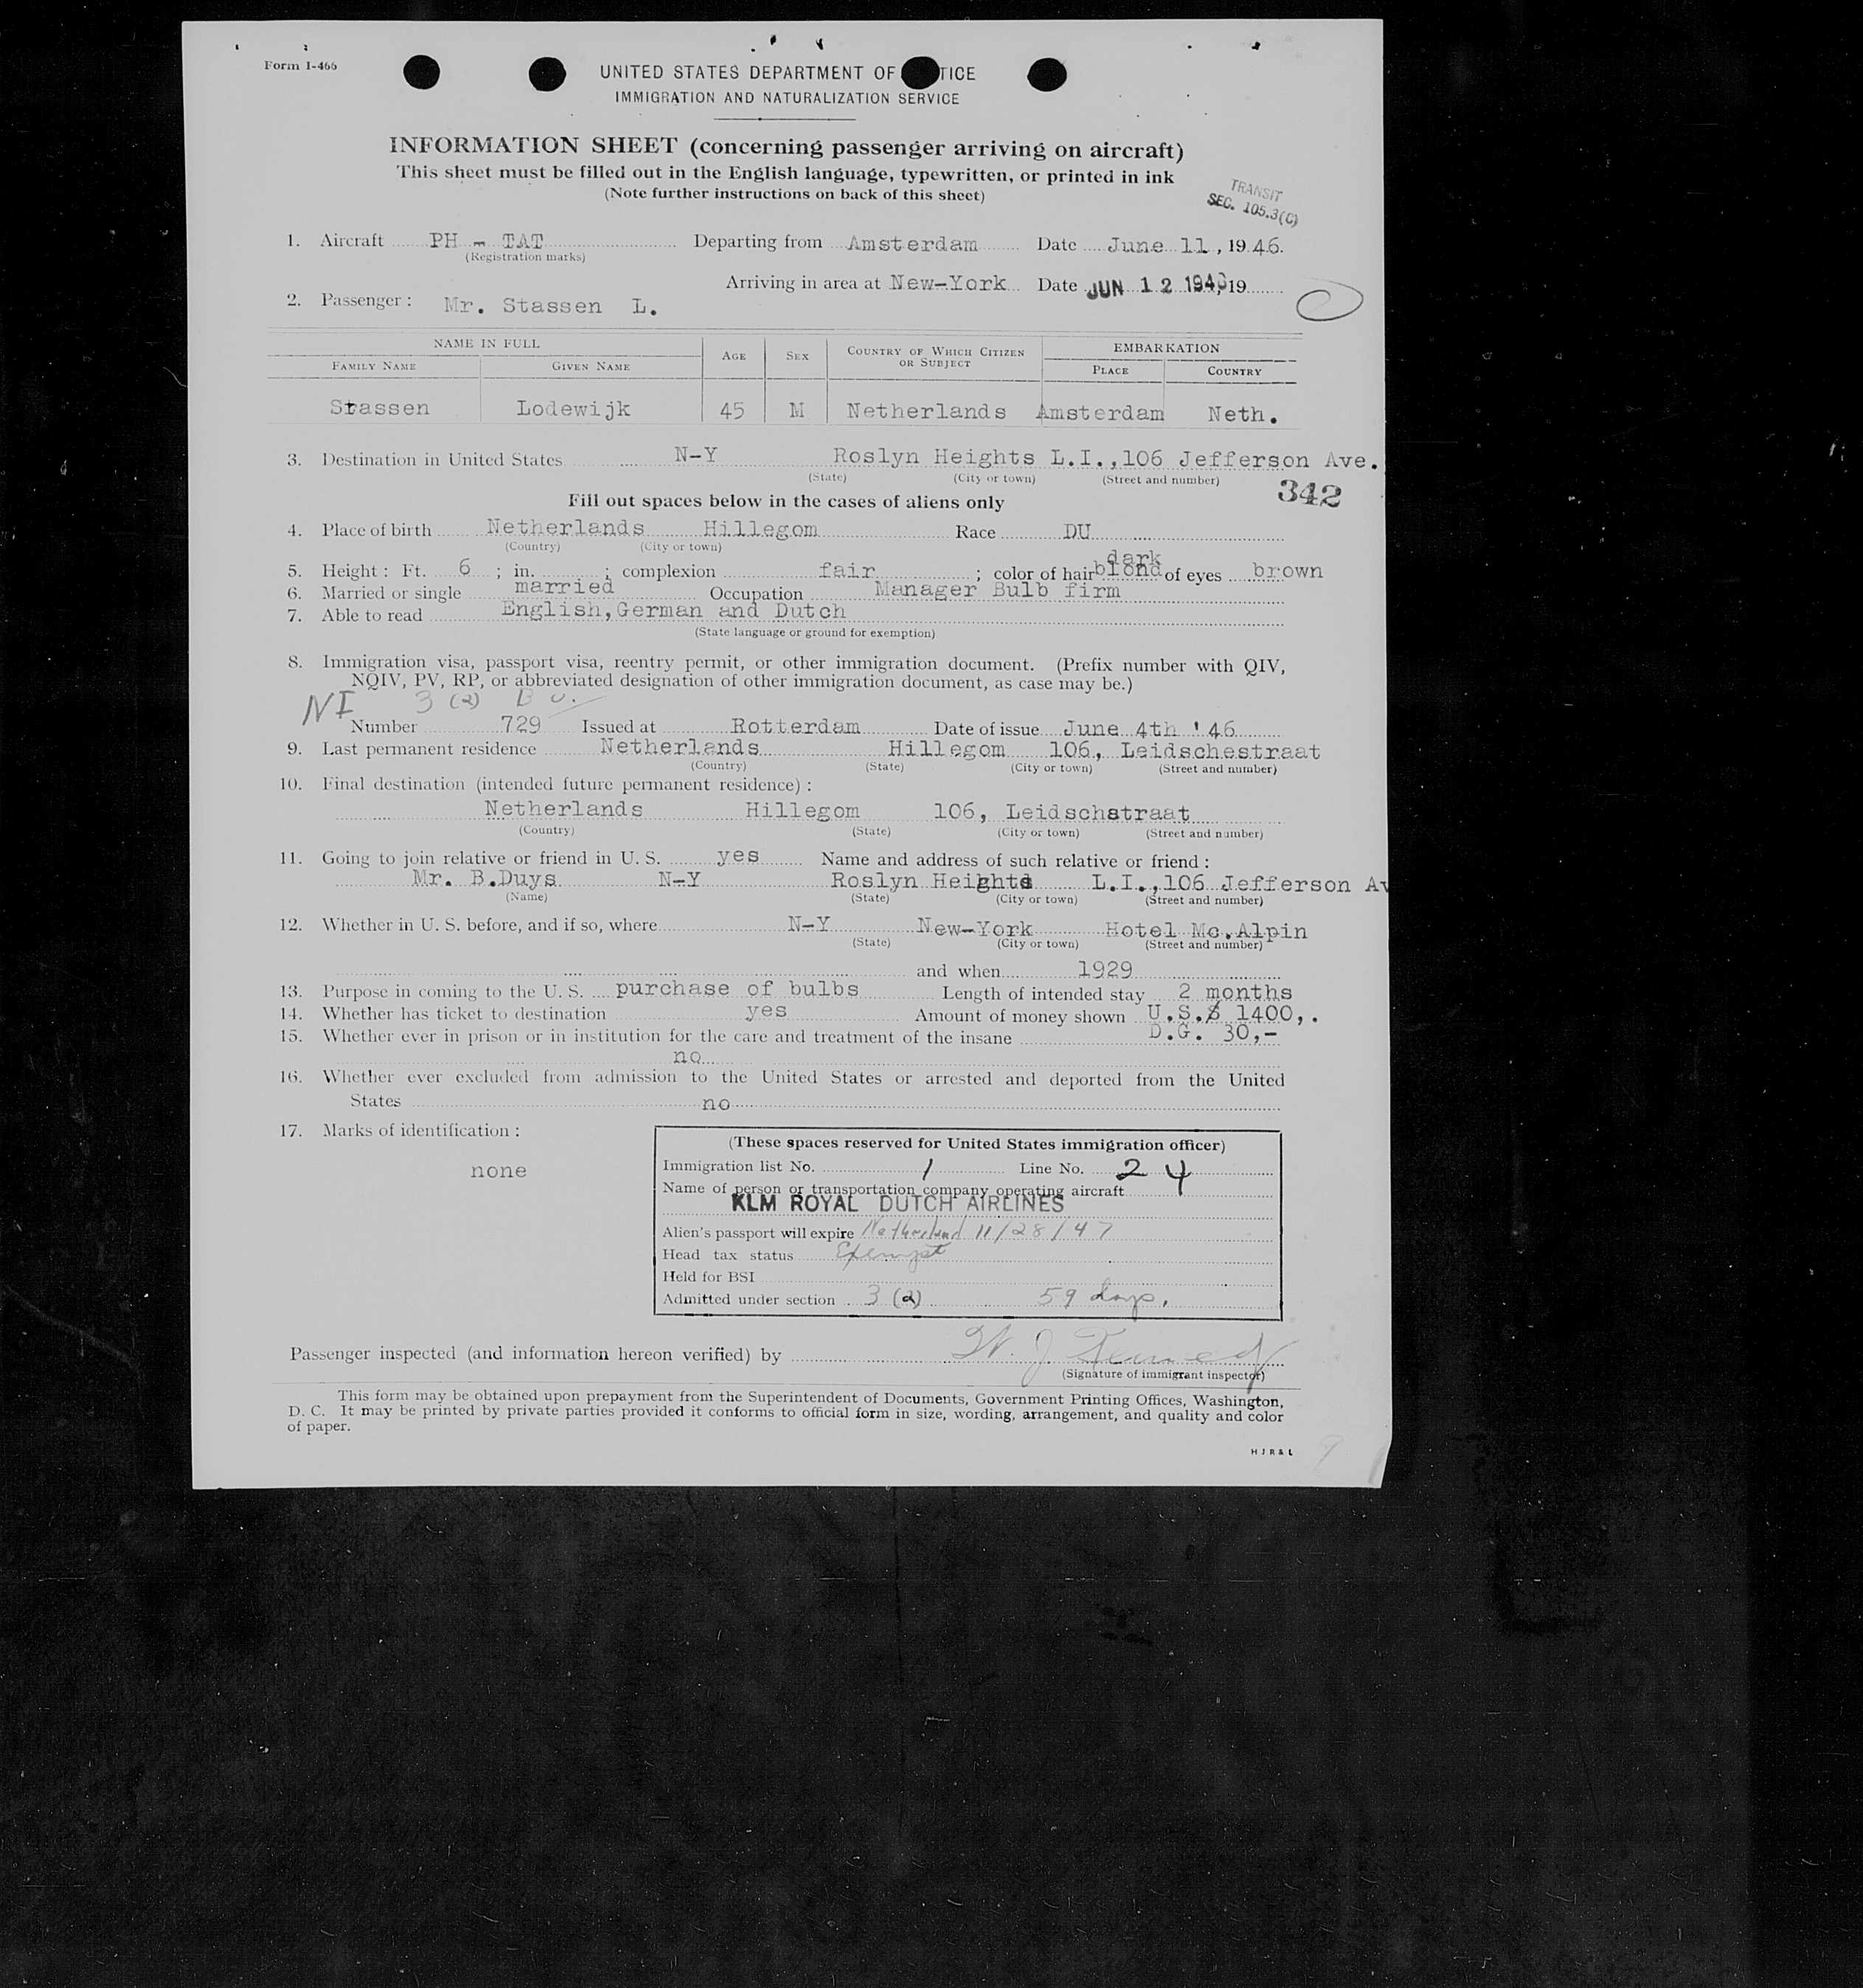 Form I-466
UNITED STATES DEPARTMENT OF TICE
IMMIGRATION AND NATURALIZATION SERVICE
INFORMATION SHEET (concerning passenger arriving on aircraft)
This sheet must be filled out in the English language, typewritten, or printed in ink
(Note further instructions on back of this sheet)
TRANSIT
SEC. 105.3(C)
1. Aircraft PH - TAT Departing from Amsterdam Date June 11, 1946.
(Registration marks)
Arriving in area at New-York Date JUN 12 1946, 19
2. Passenger: Mr. Stassen L.
NAME IN FULL AGE SEX COUNTRY OF WHICH CITIZEN OR SUBJECT EMBARKATION
FAMILY NAME GIVEN NAME PLACE COUNTRY
Stassen Lodewijk 45 M Netherlands Amsterdam Neth.
3. Destination in United States N-Y Roslyn Heights L.I.,106 Jefferson Ave.
(State) (City or town) (Street and number)
342
Fill out spaces below in the cases of aliens only
4. Place of birth Netherlands Hillegom Race DU
(Country) (City or town)
dark
5. Height: Ft. 6 ; in. ; complexion fair ; color of hair blond of eyes brown
6. Married or single married Occupation Manager Bulb firm
7. Able to read English,German and Dutch
(State language or ground for exemption)
8. Immigration visa, passport visa, reentry permit, or other immigration document. (Prefix number with QIV,
NQIV, PV, RP, or abbreviated designation of other immigration document, as case may be.)
NI 3 (2)
Number 729 Issued at Rotterdam Date of issue June 4th '46
9. Last permanent residence Netherlands Hillegom 106, Leidschestraat
(Country) (State) (City or town) (Street and number)
10. Final destination (intended future permanent residence):
Netherlands Hillegom 106, Leidschstraat
(Country) (State) (City or town) (Street and number)
11. Going to join relative or friend in U. S. yes Name and address of such relative or friend:
Mr. B.Duys N-Y Roslyn Heights L.I.,106 Jefferson Av
(Name) (State) (City or town) (Street and number)
12. Whether in U. S. before, and if so, where N-Y New-York Hotel Mc.Alpin
(State) (City or town) (Street and number)
and when 1929
13. Purpose in coming to the U. S. purchase of bulbs Length of intended stay 2 months
14. Whether has ticket to destination yes Amount of money shown U.S.$ 1400,.
15. Whether ever in prison or in institution for the care and treatment of the insane D.G. 30,-
no
16. Whether ever excluded from admission to the United States or arrested and deported from the United
States no
17. Marks of identification:
none
(These spaces reserved for United States immigration officer)
Immigration list No. 1 Line No. 24
Name of person or transportation company operating aircraft
KLM ROYAL DUTCH AIRLINES
Alien's passport will expire Netherland 11/28/47
Head tax status Exempt
Held for BSI
Admitted under section 3 (2) 59 days.
Passenger inspected (and information hereon verified) by
(Signature of immigrant inspector)
This form may be obtained upon prepayment from the Superintendent of Documents, Government Printing Offices, Washington,
D. C. It may be printed by private parties provided it conforms to official form in size, wording, arrangement, and quality and color
of paper.
H J R & L